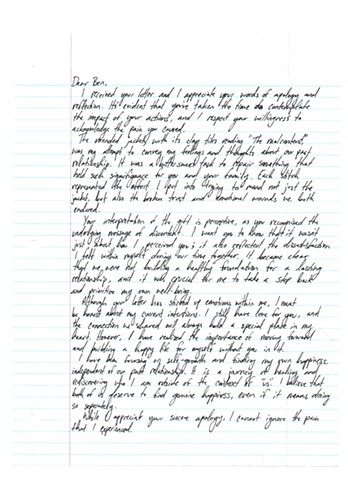 Dear Ben,
I received your letter and I appreciate your words of apology and
reflection. It's evident that you've taken the time to contemplate
the impact of your actions, and I respect your willingness to
acknowledge the pain you caused.
The mended jacket, with its clay tiles reading "The exalted
was my attempt to convey my feelings and thoughts about our past
relationship. It was a bittersweet task to repair something that
held such significance to you and your family. Each stitch
represented the effort I put into trying to mend not just the
jacket, but also the broken trust and emotional wounds we both
endured.
Your interpretation of the gift is perceptive, as you recognized the
underlying message of discomfort. I want you to know that it wasn't
just about how I perceived you; it also reflected the dissatisfaction
I felt within myself during our time together. It became clear
that we were not building a healthy foundation for a lasting
relationship, and it was crucial for me to take a step back
and prioritize my own well-being.
Although your letter has stirred up emotions within me, I must
be honest about my current intentions. I still have love for you, and
the connection we shared will always hold a special place in my
heart. However, I have realized the importance of moving forward
and building a happy life for myself without you in it.
I have been focusing on self-growth and finding my own happiness
independent of our past relationship. It is a journey of healing and
rediscovering who I am outside of the context of "us". I believe that
both of us deserve to find genuine happiness, even if it means doing
so separately.
While I appreciate your sincere apology, I cannot ignore the pain
that I experienced.